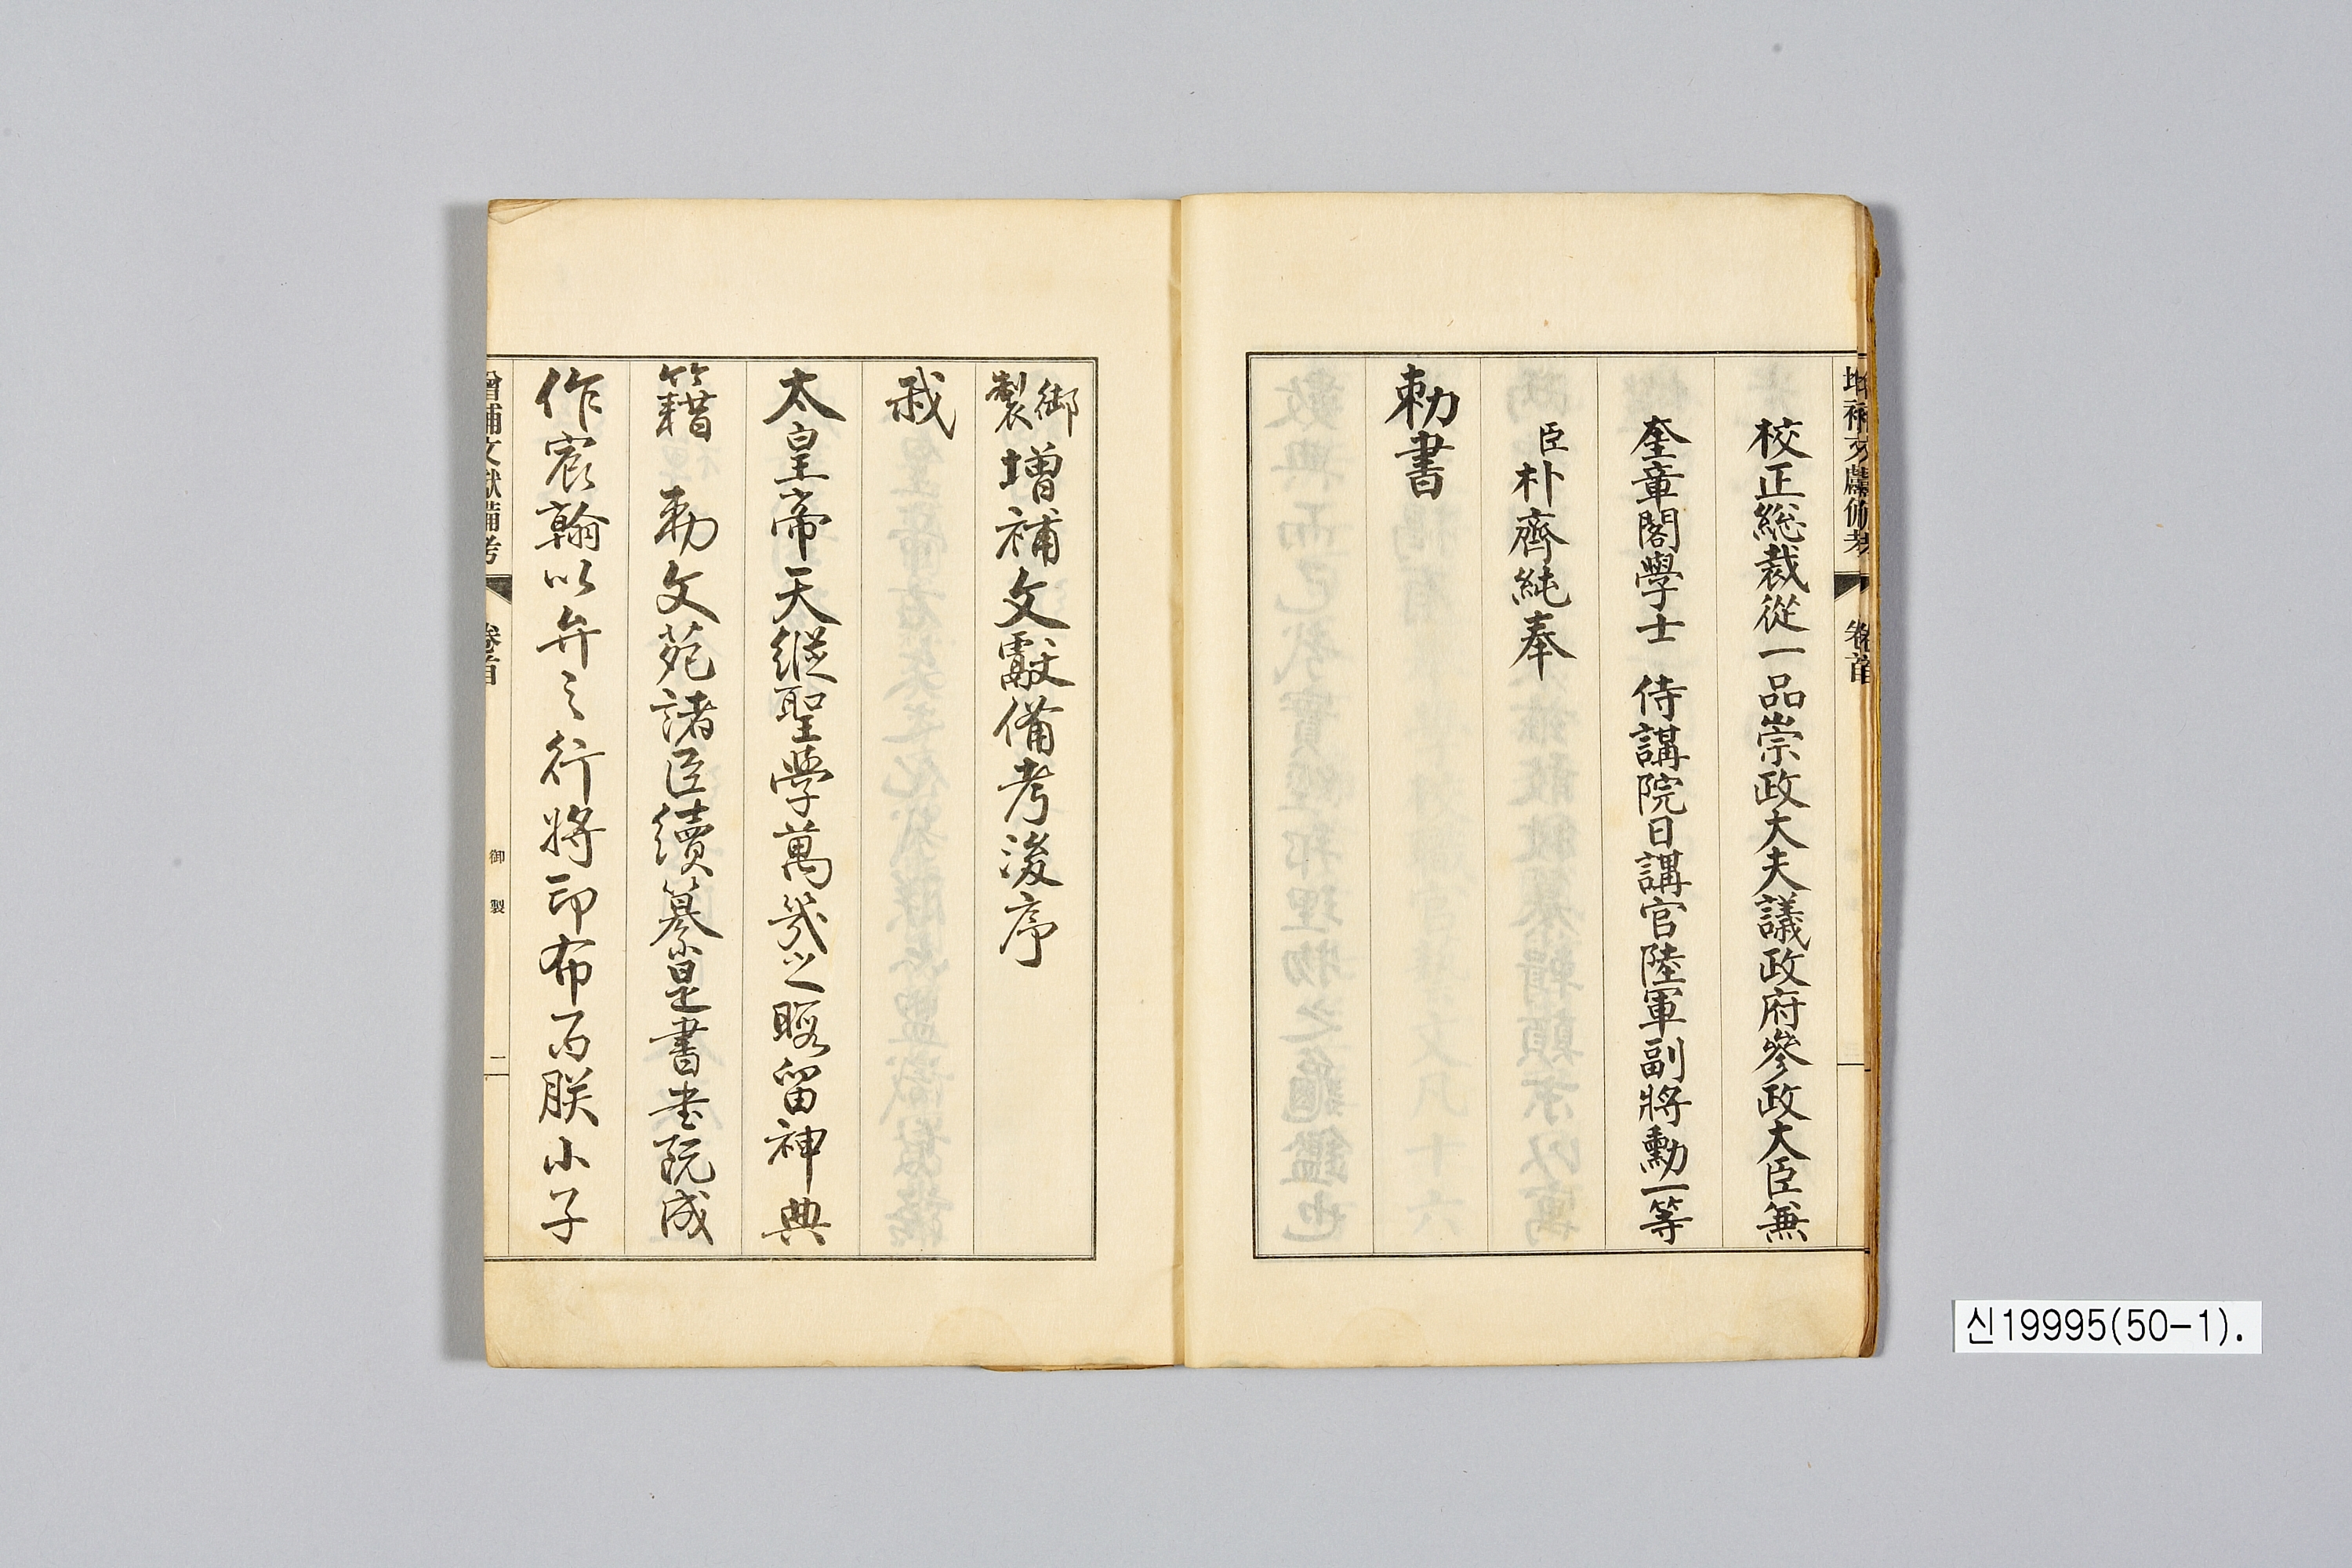 校正總裁從一品崇政大夫議政府參政大臣兼
奎章閣學士 侍講院日講官陸軍副將勳一等
臣朴齊純奉
勅書
御製增補文獻備考後序
我
太皇帝天縱聖學萬幾之暇留神典
籍 勅文苑諸臣續纂是書書既成
作宸翰以弁之行將印布而朕小子
增補文獻備考
卷首
御製
二
增補文獻備考
卷首
신19995(50-1).